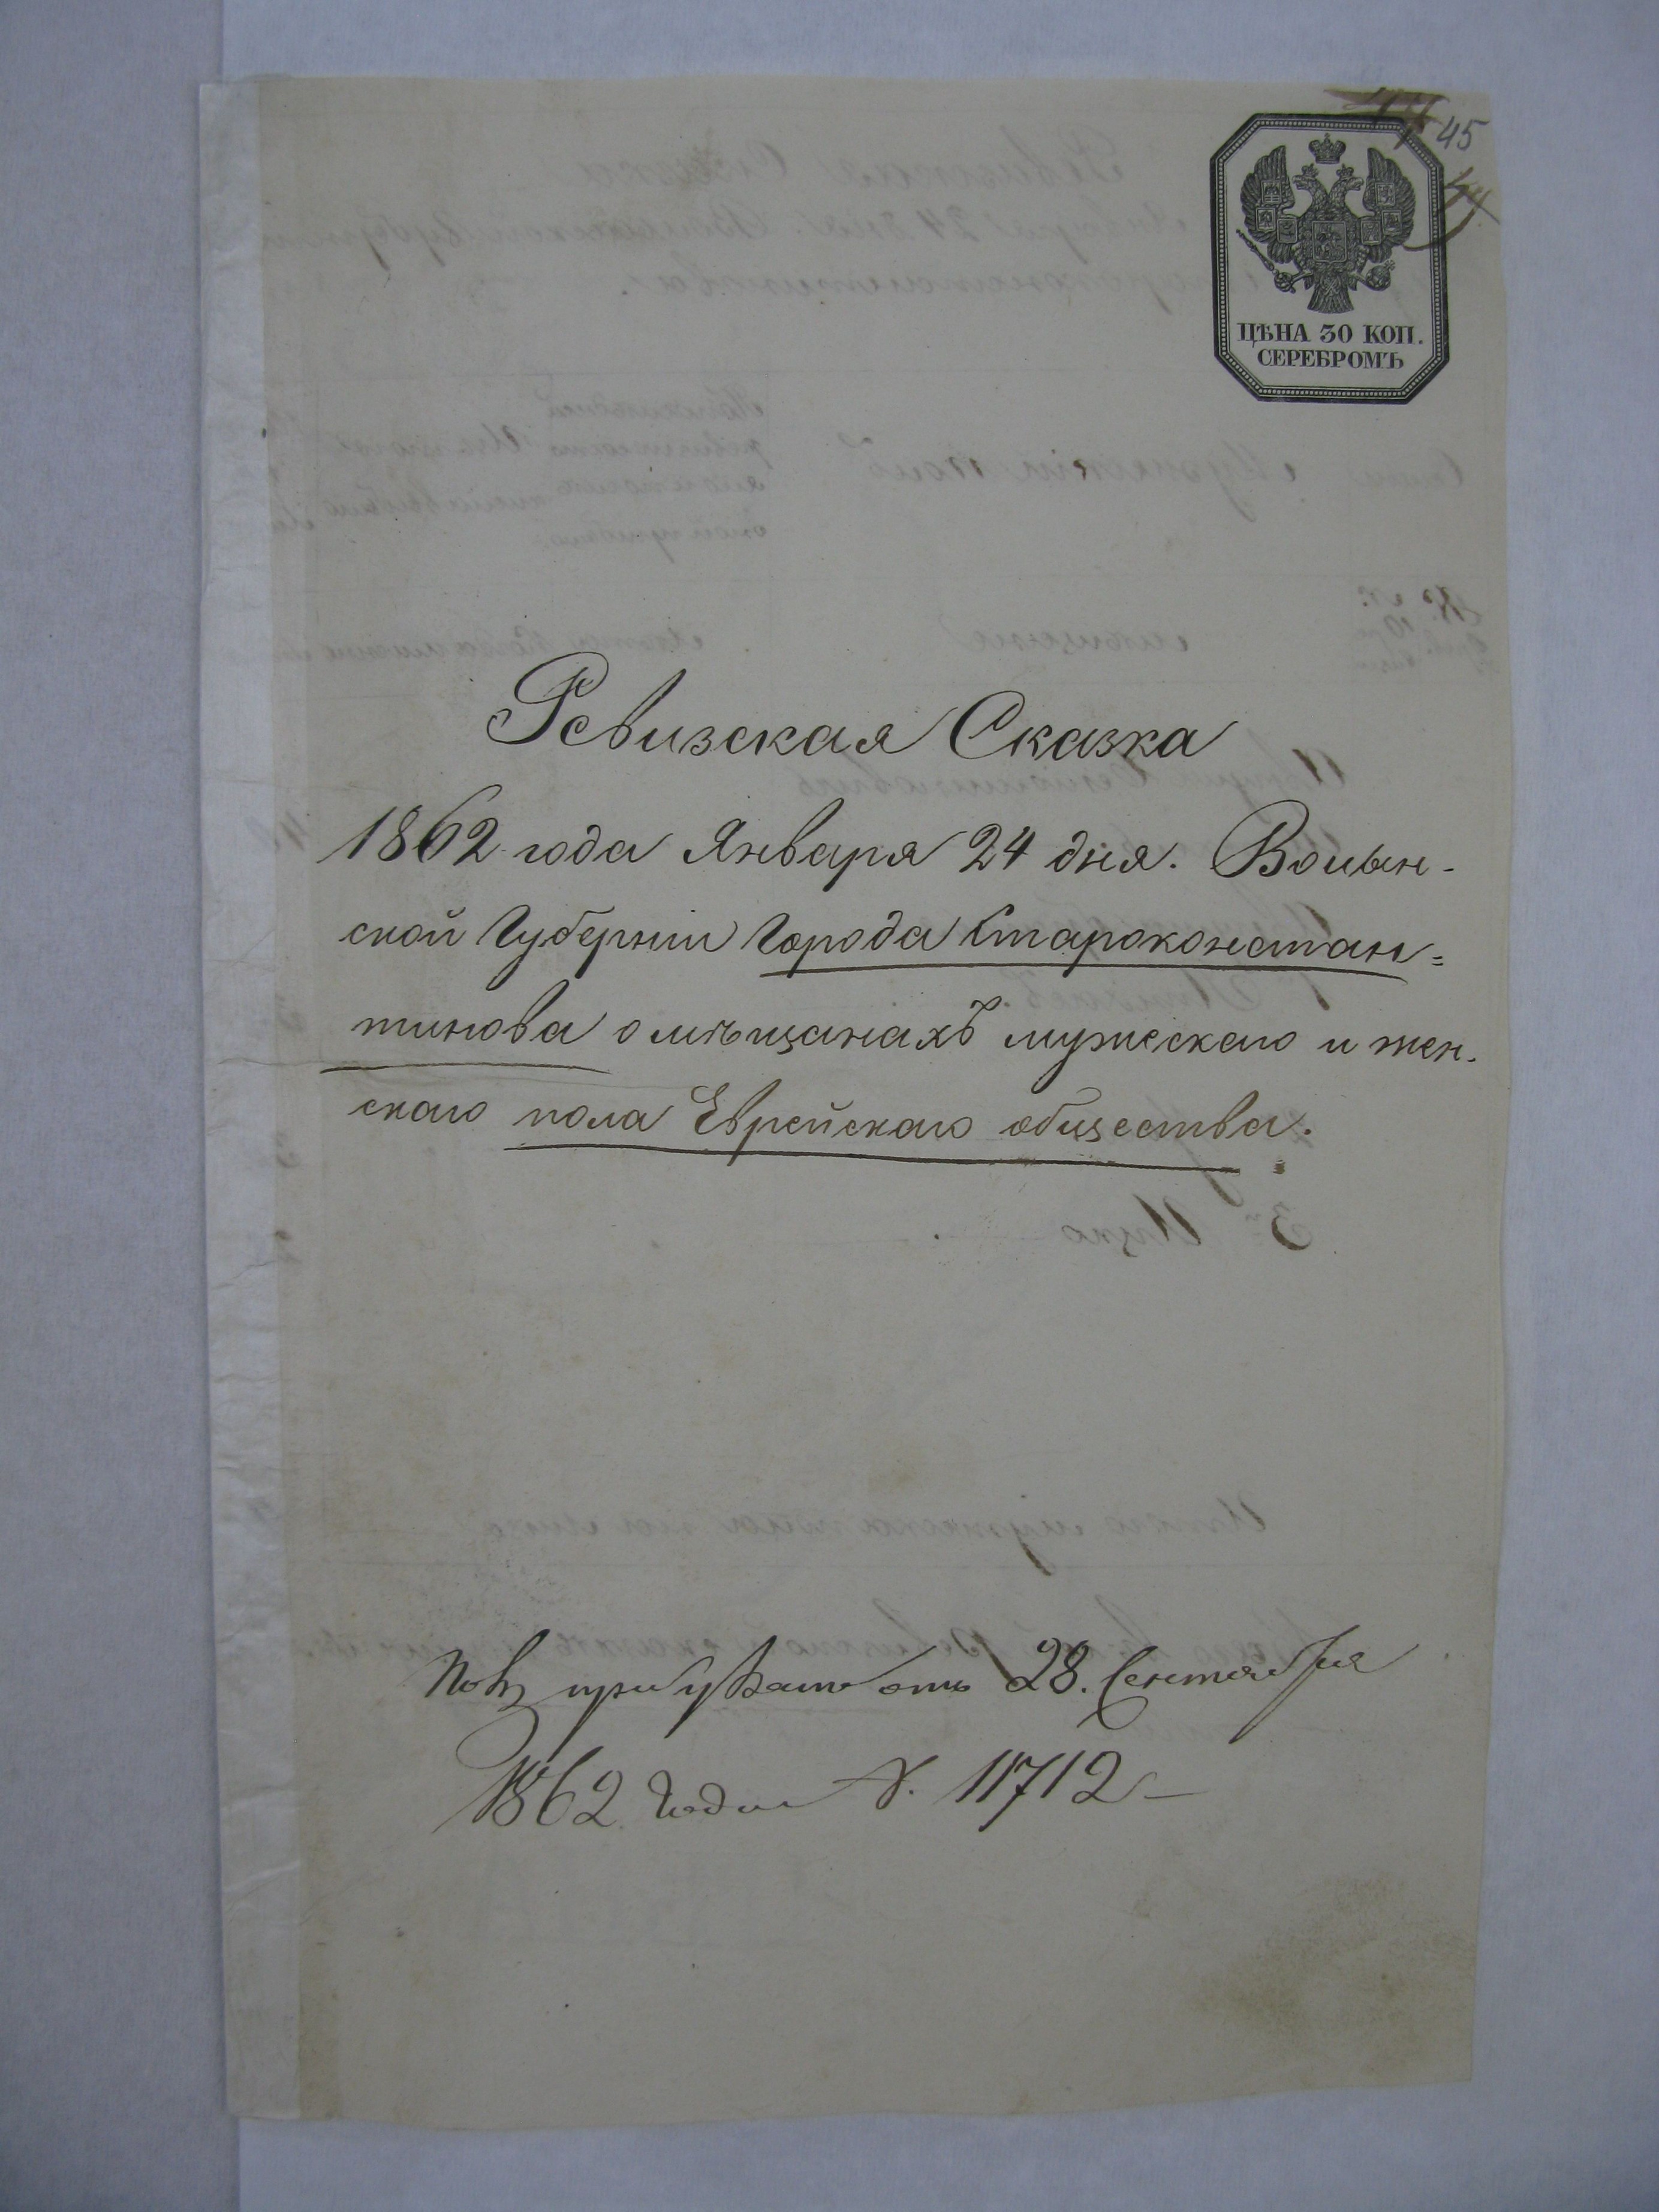 45
ЦѢНА 30 КОП.
СЕРЕБРОМЪ
Ревизская Сказка
1862 года Января 24 дня. Волын-
ской Губерніи Города Староконстан=
тинова о мѣщанахъ мужескаго и жен-
скаго пола Еврейскаго общества.
отъ 28. Сентября
1862 года N. 11712